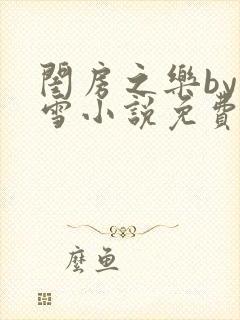 閨房之樂by
雪小說免費
麼魚